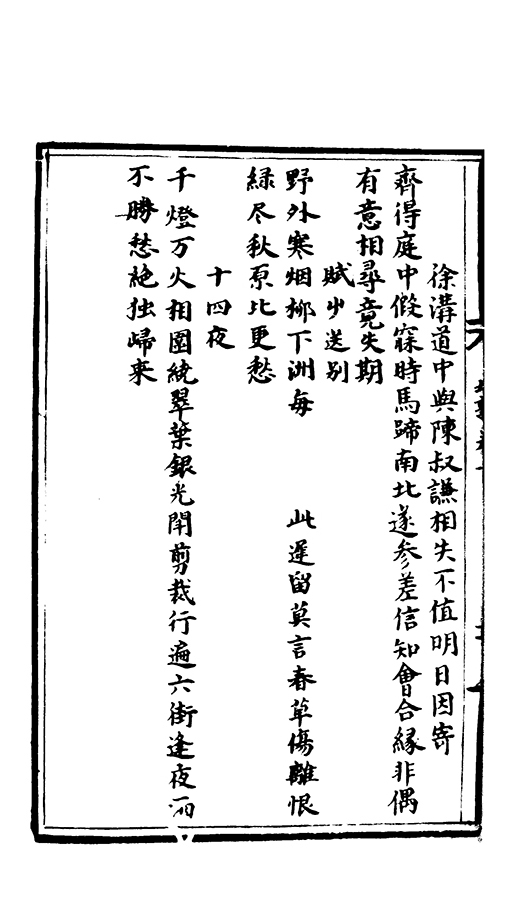 徐溝道中與陳叔謙相失不值明日因寄
齊得庭中假寐時馬蹄南北遂參差信知會合緣非偶
有意相尋竟失期
賦少送别
野外寒烟栁下洲每　　此遲留莫言春草傷離恨
緑尽秋原比更愁
十四夜
千燈万火相圍繞翠葉銀光開剪裁行遍六街逢夜
不勝愁絶独歸来